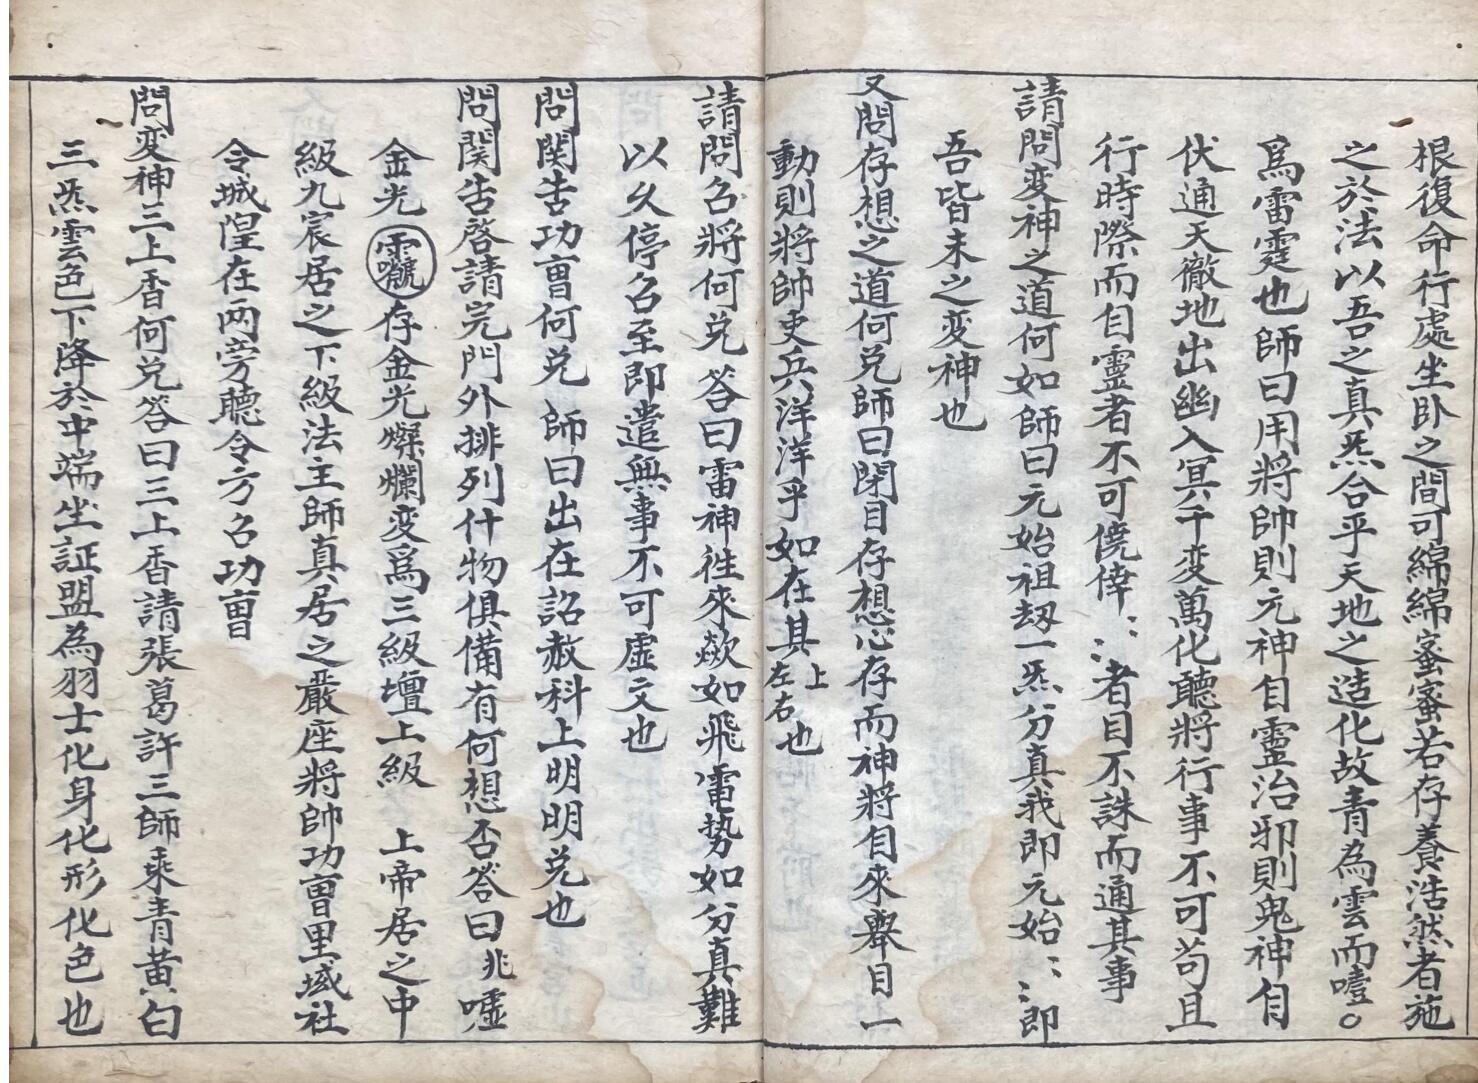 根復命行處坐卧之間可綿綿蜜蜜若存養浩然者施
之於法以吾之真炁合乎天地之造化故青為雲而噎。
爲雷霆也師曰用將帥則元神自靈治邪則鬼神自
伏通天徹地出幽入冥千变萬化聽將行事不可苟且
行時際而自靈者不可僥倖〻〻者自不誅而通其事
請問变神之道何如師曰元始祖刼一炁分真我即元始〻〻即
吾皆未之変神也
又問存想之道何兑師曰閉目存想心存而神將自來舉目一
動則將帥吏兵洋洋乎如在其上左右也
請問召將何兑 答曰雷神徃來歘如飛電势如分真難
以久停召至即遣無事不可虛文也
問関告功曺何兑 師曰出在詔赦科上明明兑也
問関告啓請完門外排列什物俱備有何想否答曰兆噓
金光存金光燦爛变爲三級壇上級 上帝居之中
級九宸居之下級法主師真居之嚴座將帥功曺里域社
令城隍在两旁聽令方召功曺
問变神三上香何兑答曰三上香請張葛許三師乘青黄白
三炁雲色下降於中端坐証盟為羽士化身化形化色也